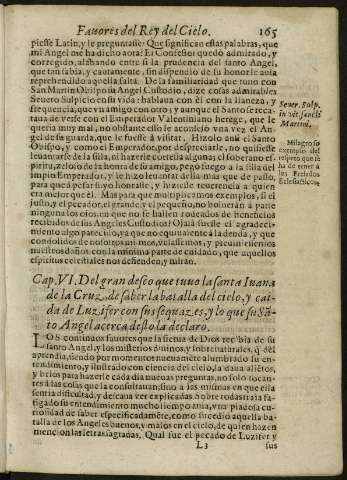 Fauores del Rey del Cielo. 165
piesse Latin, y le preguntasse: Que significan estas palabras, que
mi Angel me ha dicho aora? El Confessor quedò admirado, y
corregido, alabando entre si la prudencia del santo Angel,
que tan sabia, y cautamente, sin dispendio de su honor le auia
reprehendido aquella falta. De la familiaridad que tuuo con
San Martin Obispo su Angel Custodio, dize cosas admirables
Seuero Sulpicio en su vida: hablaua con èl con la llaneza, y
frequencia, que vn amigo con otro; y aunque el santo se recataua
de verse con el Emperador Valentiniano herege, que le
queria muy mal, no obstante esso le aconsejò vna vez el Angel
de su guarda, que le fuesse à visitar. Hizolo assi el Santo
Obispo, y como el Emperador, por despreciarle, no quisiesse
leuantarse de la silla, ni hazerle cortesia alguna; el soberano espiritu,
zeloso de la honra de su amigo, pegò fuego a la silla del
impio Emperador, y le hizo leuantar della mas que de passo,
para que à pesar suyo honrasse, y hiziesse reuerencia a quien
era mejor que èl. Mas para que multiplicamos exemplos, si el
justo, y el pecador, el grande, y el pequeño, no ignoran a parte
ninguna los ojos, en que no se hallen rodeados de beneficios
recibidos de sus Angeles Custodios? Ojalà fuesse el agradecimiento
algo parecido, ya que no equiualente à la deuda, y que
condolidos de nosotros mismos, velassemos, y preuiniessemos
nuestros daños con la atencion, vigilancia, y amor, que aquellos
espiritus celestiales nos defienden, y miran.
Seuer. Sulp.
in vit. sancti
Martini.
Milagroso
exemplo del
respeto que se
ha de tener à
los Prelados
Eclesiasticos.
Cap. VI. Del gran deseo que tuuo la santa Iuana
de la Cruz, de saber la batalla del cielo, y caida
de Luzifer con sus sequazes, y lo que su Santo
Angel acerca desto la declarò.
LOS continuos fauores que la sierua de Dios recibia de su
santo Angel, y los misterios diuinos, y sobrenaturales, que dèl
aprendia, siendo por momentos nueuamente alumbrado su entendimiento,
y ilustrado con ciencia del cielo, la daua alietos,
y brios para hazerle cada dia nueuas preguntas, no solo tocantes
à las cosas que la consultauan, sino a las mismas en que ella
sentia dificultad, y deseaua ver explicadas. Sobre todas traìa fatigado
su entendimiento mucho tiempo auia, vna piadosa curiosidad
de saber especificadamète, como sucediò aquella batalla
de los Angeles buenos, y malos en el cielo, de quien hazen
mencion las letras sagradas, Qual fue el pecado de Luzifer y
L 3 sus